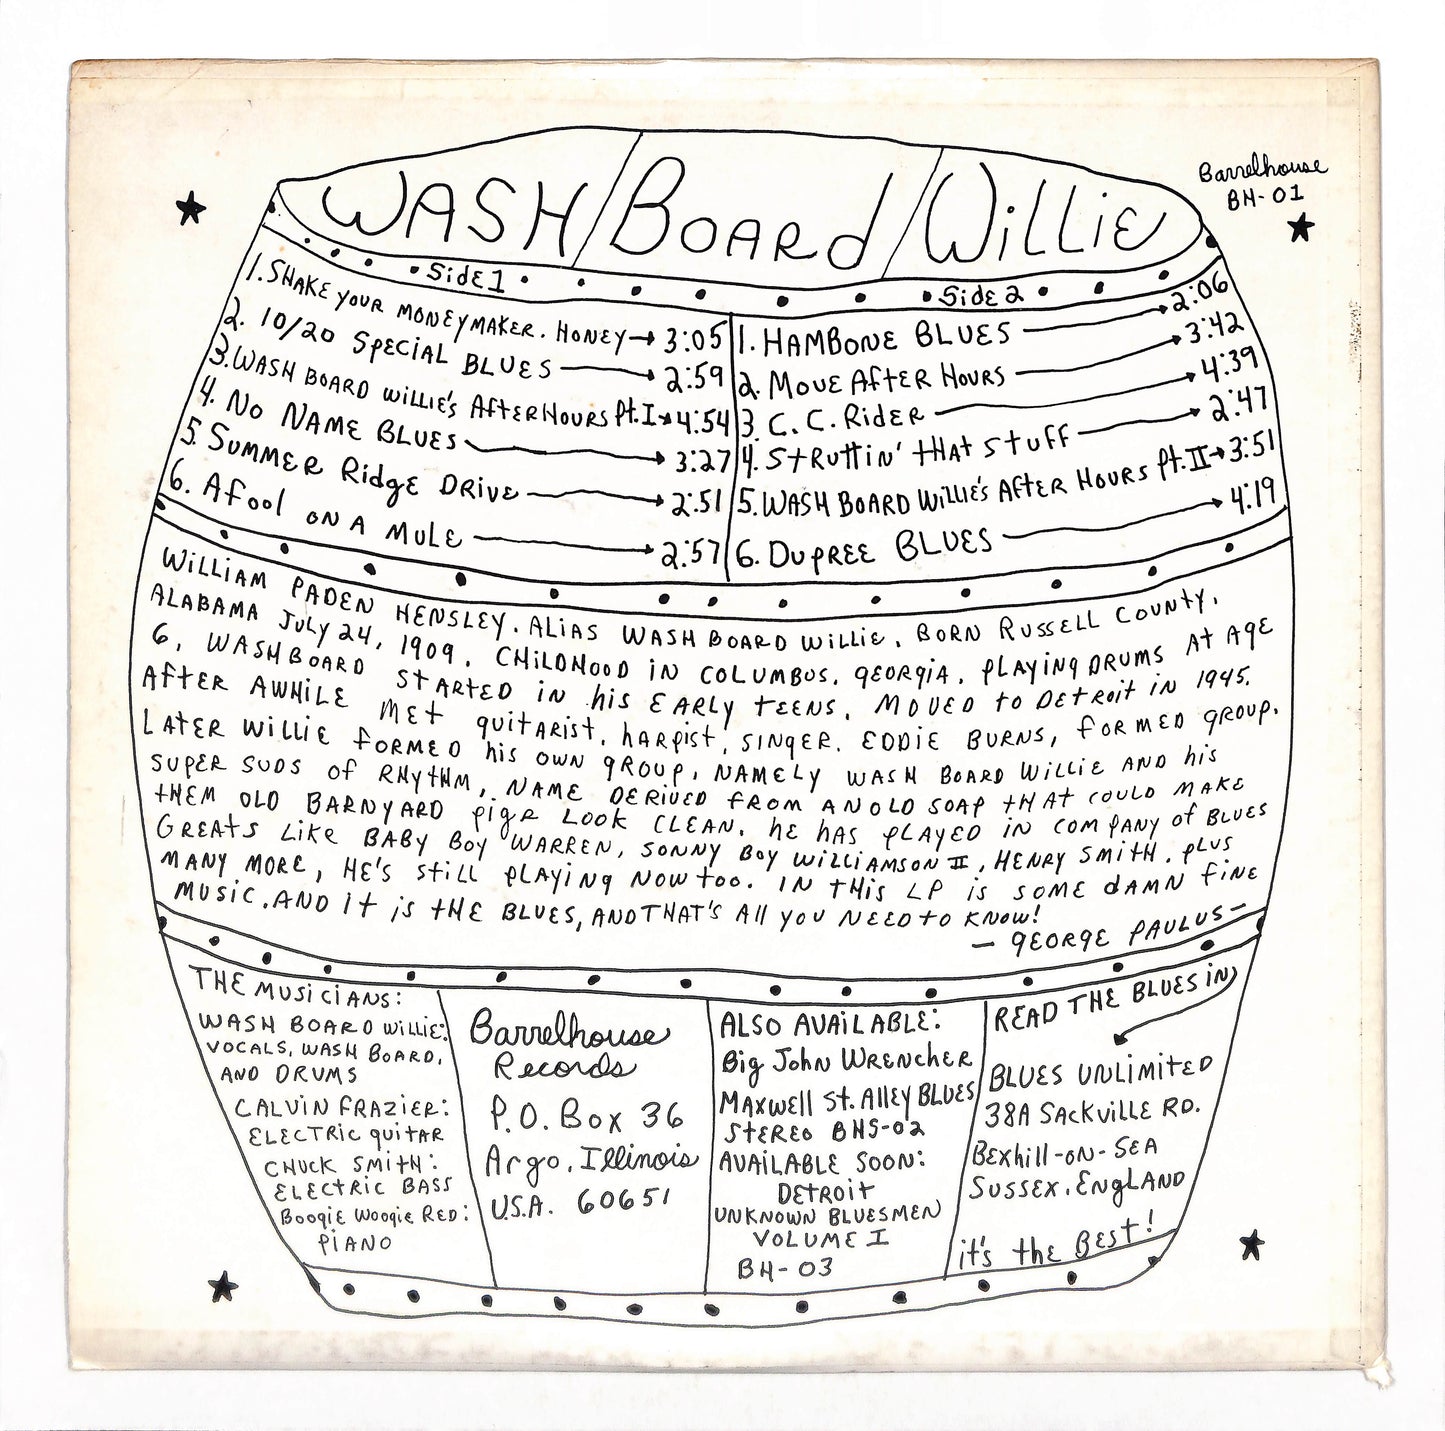 Barrelhouse
BH-01
WASH/BOARD/WilliE
Side 1
1. SHAKE YOUR MONEYMAKER. HONEY → 3:05
2. 10/20 SPECIAL BLUES → 2:59
3. WASH BOARD WilliE's AfTER HOURS Pt. I → 4:54
4. NO NAME BLUES → 3:27
5. SUMMER RidgE DRIVE → 2:51
6. A fool ON A MULE → 2:57
Side 2
1. HAMBONE BLUES → 2:06
2. MOVE AfTER HOURS → 3:42
3. C. C. RidER → 4:39
4. StRuttin' tHAt StuFF → 2:47
5. WASH BOARD WilliE's AfTER HOURS Pt. II → 3:51
6. DupREE BLUES → 4:19
WilliAM PADEN HENSLEY. ALiAS WASH BOARD WilliE. BORN RUSSELL COUNTY,
ALABAMA July 24, 1909. CHILDHOOD iN COLUMBUS. gEORgiA. PLAYiNg DRUMS At AgE
6, WASHBOARD StARTED iN his EARLY tEENS. MOVED to DEtRoit iN 1945.
AftER AWHiLE MEt guitARist, hARpist, SiNgER. EDDIE BURNS, foRMED gROUP.
LAtER WilliE foRMED his OWN gROUp, NAMELY WASH BOARD WilliE AND his
SUPER SUDS of RHYtHM, NAME DERiVED fROM AN OLD SOAP tHAt COULD MAKE
tHEM OLD BARNYARD pigs LOOK CLEAN. hE hAS PLAYED iN COMPANY of BLUES
GREAtS LiKE BABY BOY WARREN, SONNY BOY WilliAMSON II, HENRY SMitH. PLUS
MANY MORE, HE'S StiLL PLAYiNg NOW too. IN tHiS LP iS SOME dAMN fiNE
MUSiC. AND it is tHE BLUES, AND tHAT'S All yOU NEED to KNOW!
— gEORgE PAULUS —
THE MUSiCiANS:
WASH BOARD WilliE:
VOCALS, WASH BOARD,
AND DRUMS
CALViN FRAZiER:
ELECTRiC guitAR
CHUCK SMitH:
ELECTRiC BASS
BoogiE WoogiE RED:
PiANO
Barrelhouse
Records
P.O. Box 36
Argo, Illinois
U.S.A. 60651
ALSO AVAiLABLE:
Big JOHN WRENCHER
MAXWEll St. AllEy BLUES
StEREO BHS-02
AVAiLABLE SOON:
DETROit
UNKNOWN BLUESMEN
VOLUME I
BH-03
READ THE BLUES iN
BLUES UNLiMitED
38A SACKViLLE RD.
BExhill-ON-SEA
SUSSEX. ENgLAND
it's thE BEst!